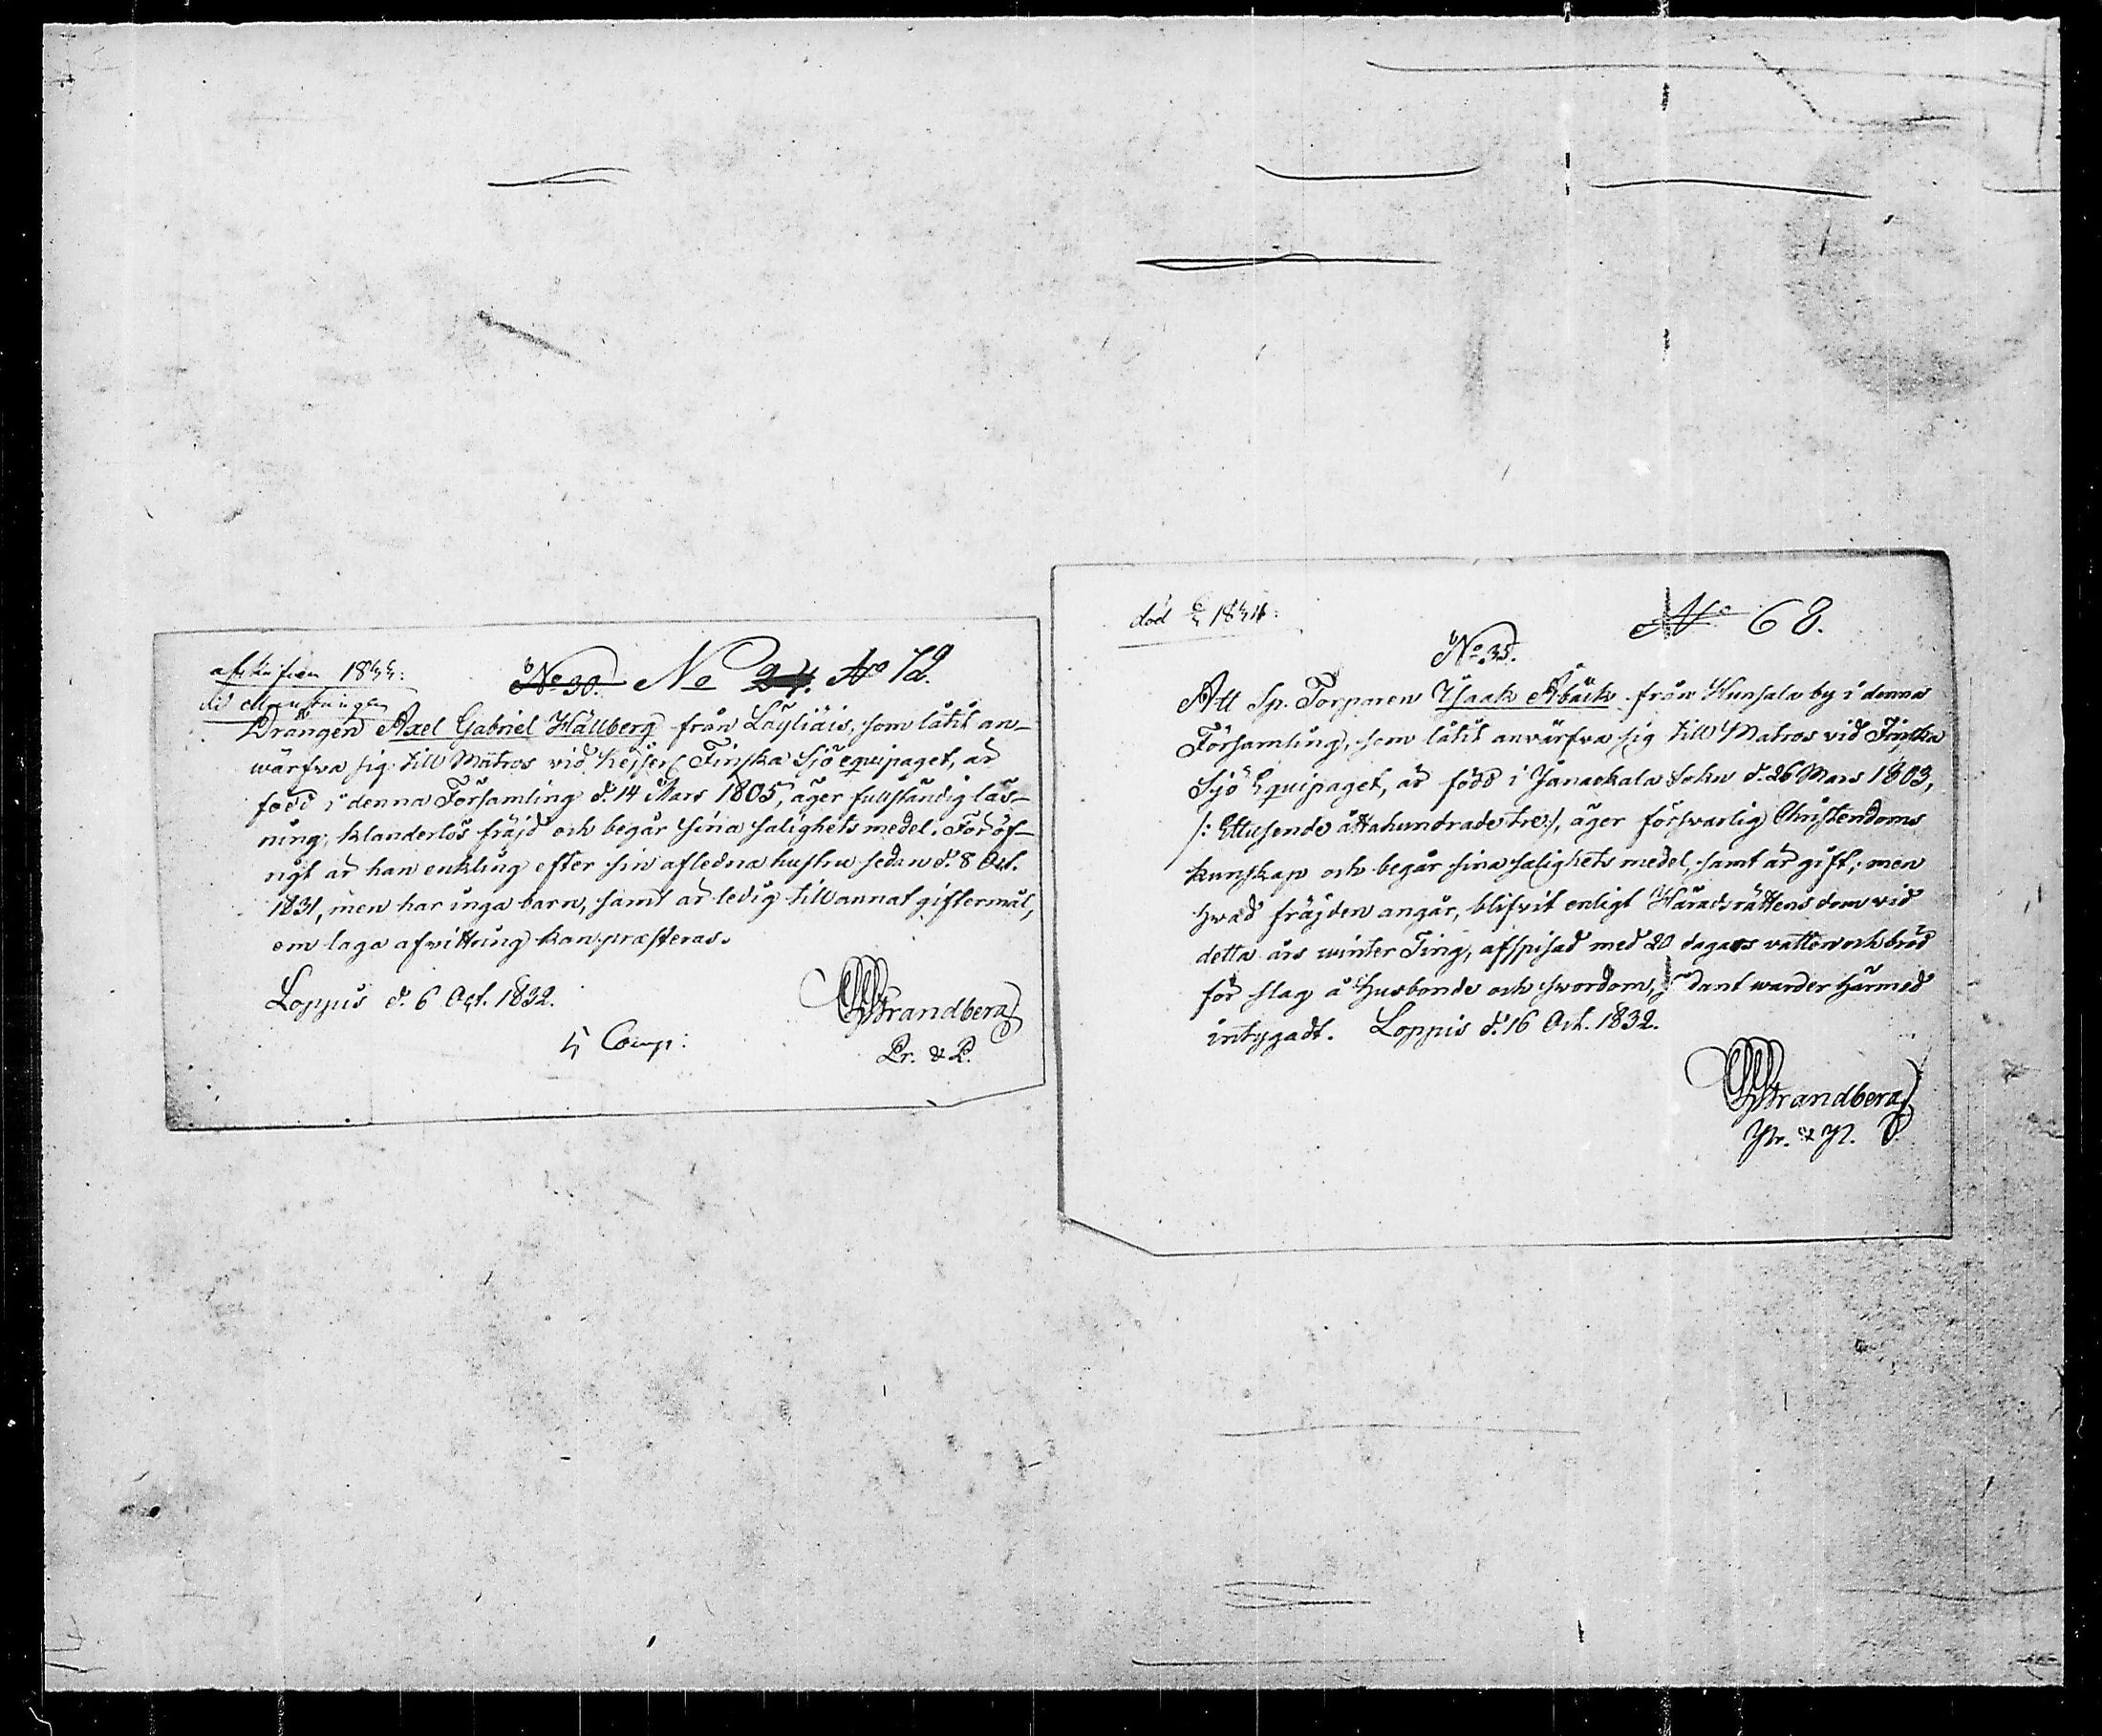 afskrifven 1833:
vid Mönstringen
No 30. No 24. No 72.
Drängen Axel Gabriel Hällberg från Läyliäis, som låtit an-
wärfva sig till Matros vid Kejserl. Finska Sjö equipaget, är
född i denna Församling d. 14 Mars 1805, äger fullständig läs-
ning, klanderlös fräjd och begår sina salighets medel. För öf-
rigt är han enkling efter sin aflidna hustru sedan d. 8 Oct.
1831, men har inga barn, samt är ledig till annat giftermål,
om laga afwittring kan præsteras.
Loppis d. 6 Oct. 1832.
Strandberg
Pr. & P.
5 Comp:
död 1834:
No 68.
No 35.
Att Sp. Torparen Isaak Åbäck från Hunsala by i denna
Församling, som låtit anvärfva sig till Matros vid Finska
Sjö Equipaget, är född i Janackala Sokn d. 26 Mars 1803,
/: Ettusende åttahundrade tre :/, äger förswarlig Christendoms
kunskap och begår sina salighets medel, samt är gift; men
hwad fräjden angår, blifvit enligt Häradsrättens dom vid
detta års winter Ting, afspisad med 20 dagars vatten och bröd
för slag å Husbonde och swordom, sådant warder härmed
intygadt. Loppis d. 16 Oct. 1832.
Strandberg
Pr. & P.